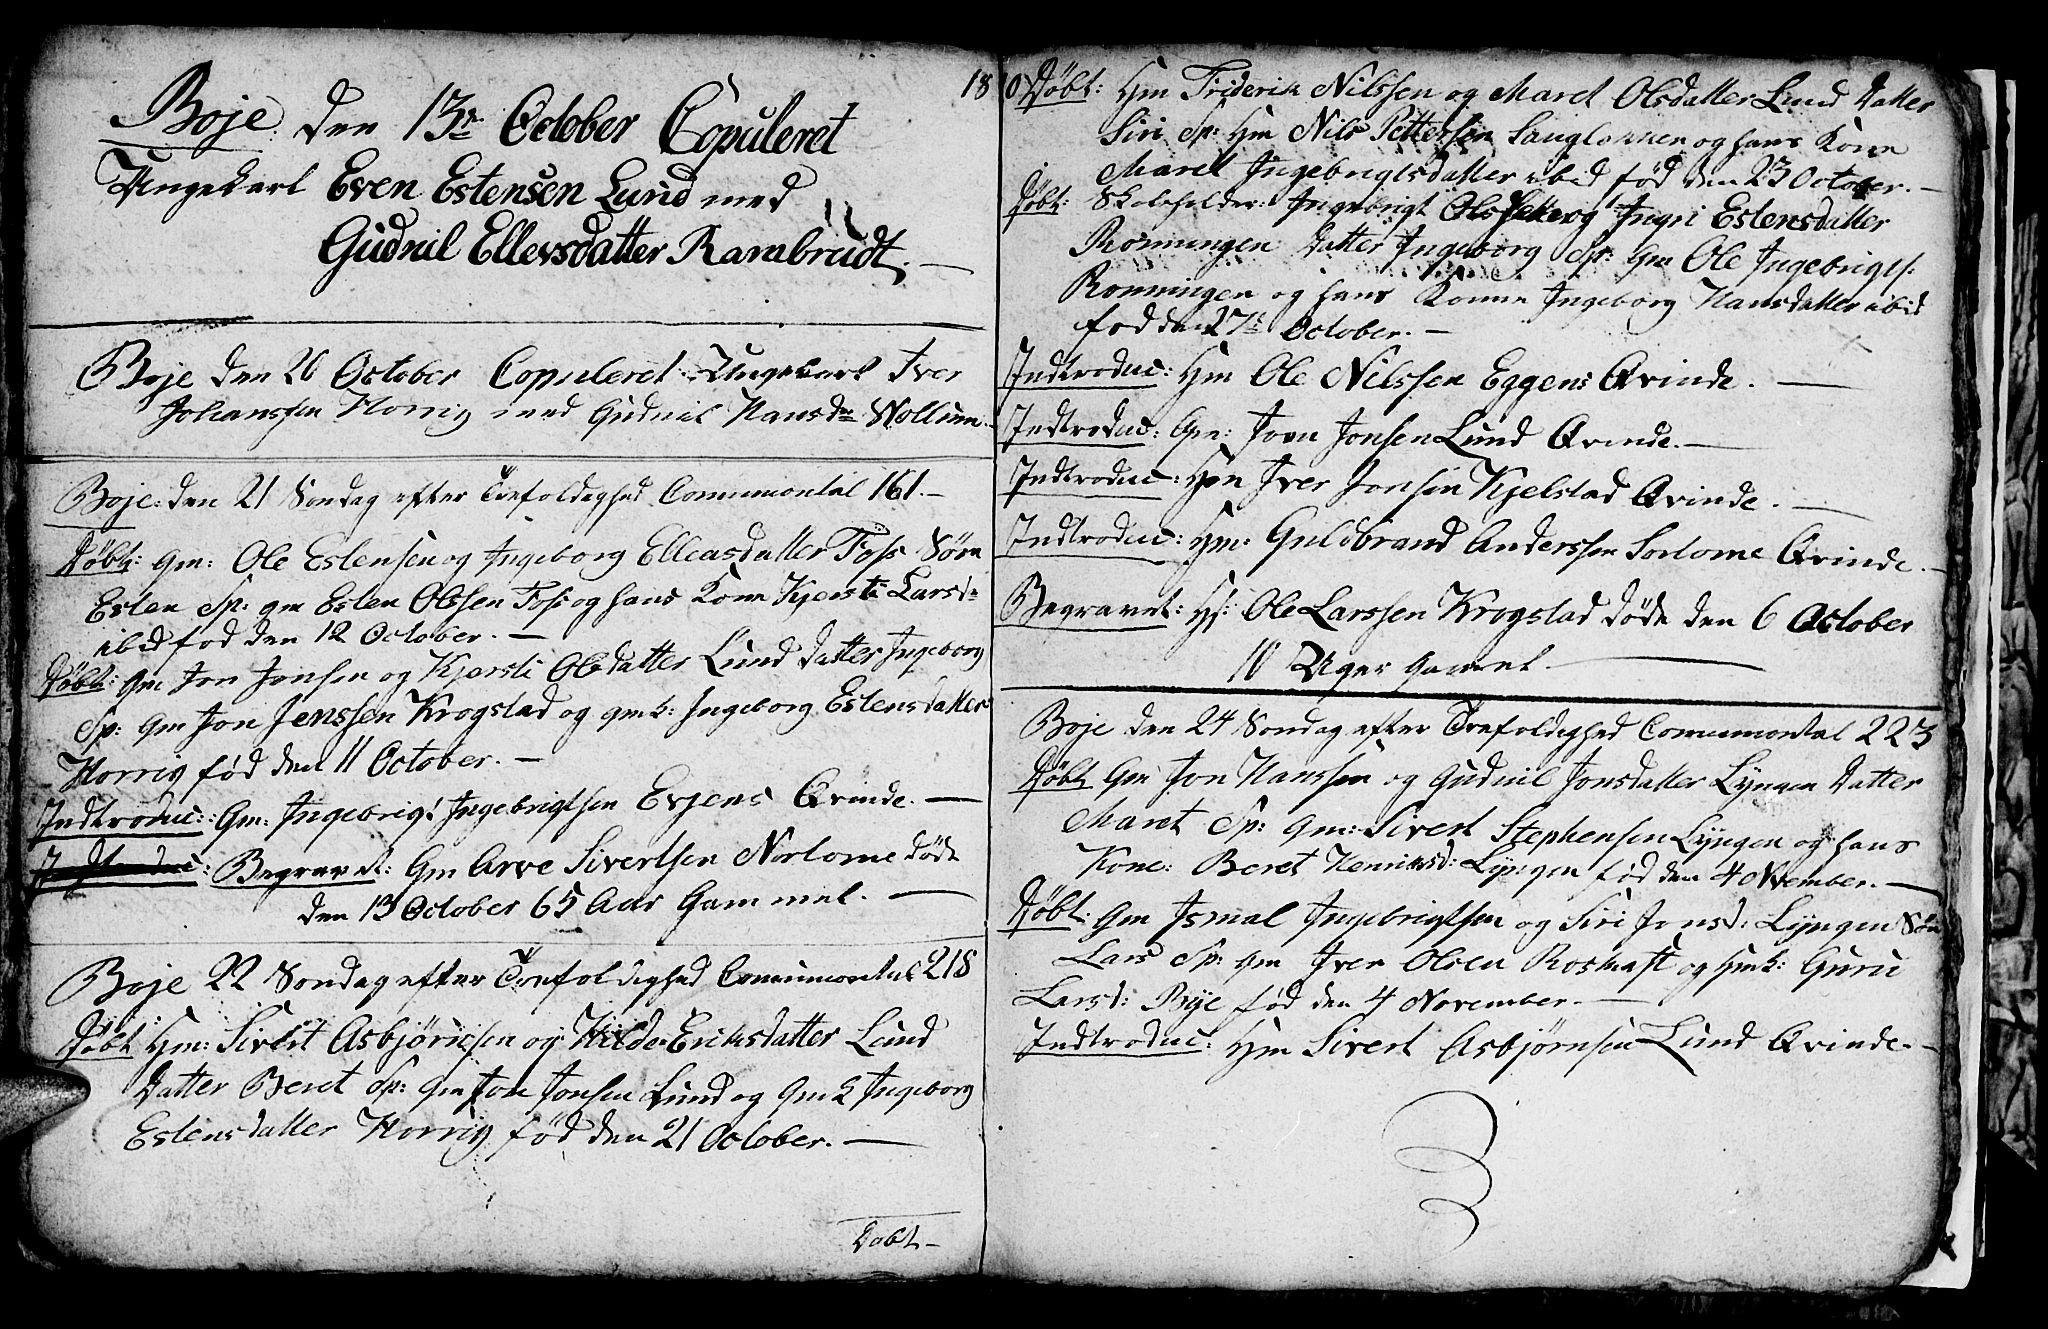 Boje. den 13de October Copuleret
Ungekarl Even Estensen Lund med
Gudnil Ellevsdatter Rambredt.
Boje den 20 October Copuleret Ungekarl Iver
Johanssen Horrig med Gudnil Hansdr Wollum.
Boje: den 21 Søndag efter Trefoldighed Communontal 161.
Døbt: Gm: Ole Estensen og Ingeborg Ellensdatter Foss Søn
Esten Sp: gm Esten Olssen Foss og hans Kone Kjersti Larsdr
ibid fød den 12 October.
Døbt: Gm Jon Jonsen og Kjersti Olsdatter Lund datter Ingeborg
Sp: Gm Jon Jenssen Krogstad og gmk: Ingeborg Estensdatter
Horrig fød den 11 October.
Indtroduc: Gm: Ingebrigt Ingebrigtsen Evjens Qvinde.
Indtroduc: Begravet: Gm Arve Sivertsen Norlome døde
den 13 October 65 Aar Gammel.
Boje 22 Søndag efter Trefoldighed Communontal 218
Døbt Hm: Sivert Asbjørnsen og Kilde Eriksdatter Lund
Datter Beret Sp: Gm Jon Jonsen Lund og Gmk Ingeborg
Estensdatter Horrig fød den 21 October.
Døbt
1810
Døbt: Hm Friderik Nilssen og Maret Olsdatter Lund Datter
Siri Sp: Hm Nils Pettersen Langløkken og hans Kone
Maret Ingebrigtsdatter ibid fød den 23 October.
Døbt: Skoleholder: Ingebrigt og Ingri Estensdatter
Ronningen Datter Ingeborg Sp: Gm Ole Ingebrigts:
Ronningen og hans Konne Ingeborg Hansdatter ibid
fød den 27de October.
Indtroduc: Hm Ole Nilssen Eggens Qvinde.
Indtroduc: Gm: Joen Jonsen Lund Qvinde.
Indtroduc: Hm Iver Jonsen Kjelstad Qvinde.
Indtroduc: Hm: Guldbrand Anderssen Sorlome Qvinde.
Begravet: Hs: Ole Larssen Krogstad døde den 6 October
10 Uger Gammel.
Boje den 24 Søndag efter Trefoldighed Communontal 223
Døbt Gm Jon Hanssen og Gudnil Jonsdatter Lyngen Datter
Maret Sp: Gm: Sivert Stephensen Lyngen og hans
Kone: Beret Henriksd: Lyngen fød den 4 November.
Døbt: Gm Ismal Ingebrigtsen og Siri Jonsd: Lyngen Søn
Lars Sp: Gm Iver Olsen Roskaft og Hmk: Guru
Larsd: Bye fød den 4 November.
Indtroduc: Hm Sivert Asbjørnsen Lund Qvinde.